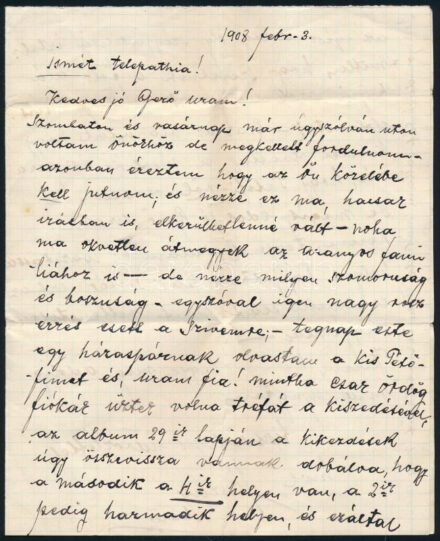 1908 febr. 3.
Ismét telepathia!
Kedves jó Gerő uram!
Szombaton és vasárnap már úgyszólván uton
voltam önökhöz de megkellett fordulnom –
azonban éreztem hogy az Ön közelébe
kell jutnom; és nézze ez ma, hacsak
irásban is, elkerülhetlenné vált – noha
ma okvetlen átmegyek az aranyos fami
liához is — de nézze milyen szomoruság
és boszuság – egyszóval igen nagy rosz
érzés esett a szivemre; – tegnap este
egy házaspárnak olvastam a kis Pető-
fimet és, uram fia! mintha csak ördög
fiókák űztek volna tréfát a kiszedéséből,
az album 29 ik lapján a kikezdések
úgy összevissza vannak dobálva, hogy
a második a 4 ik helyen van, a 2 ik
pedig harmadik helyen, és ezáltal